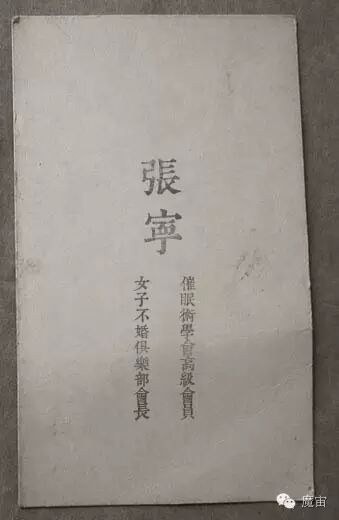 張寧
催眠術學會高級會員
女子不婚俱樂部會長
魔宙